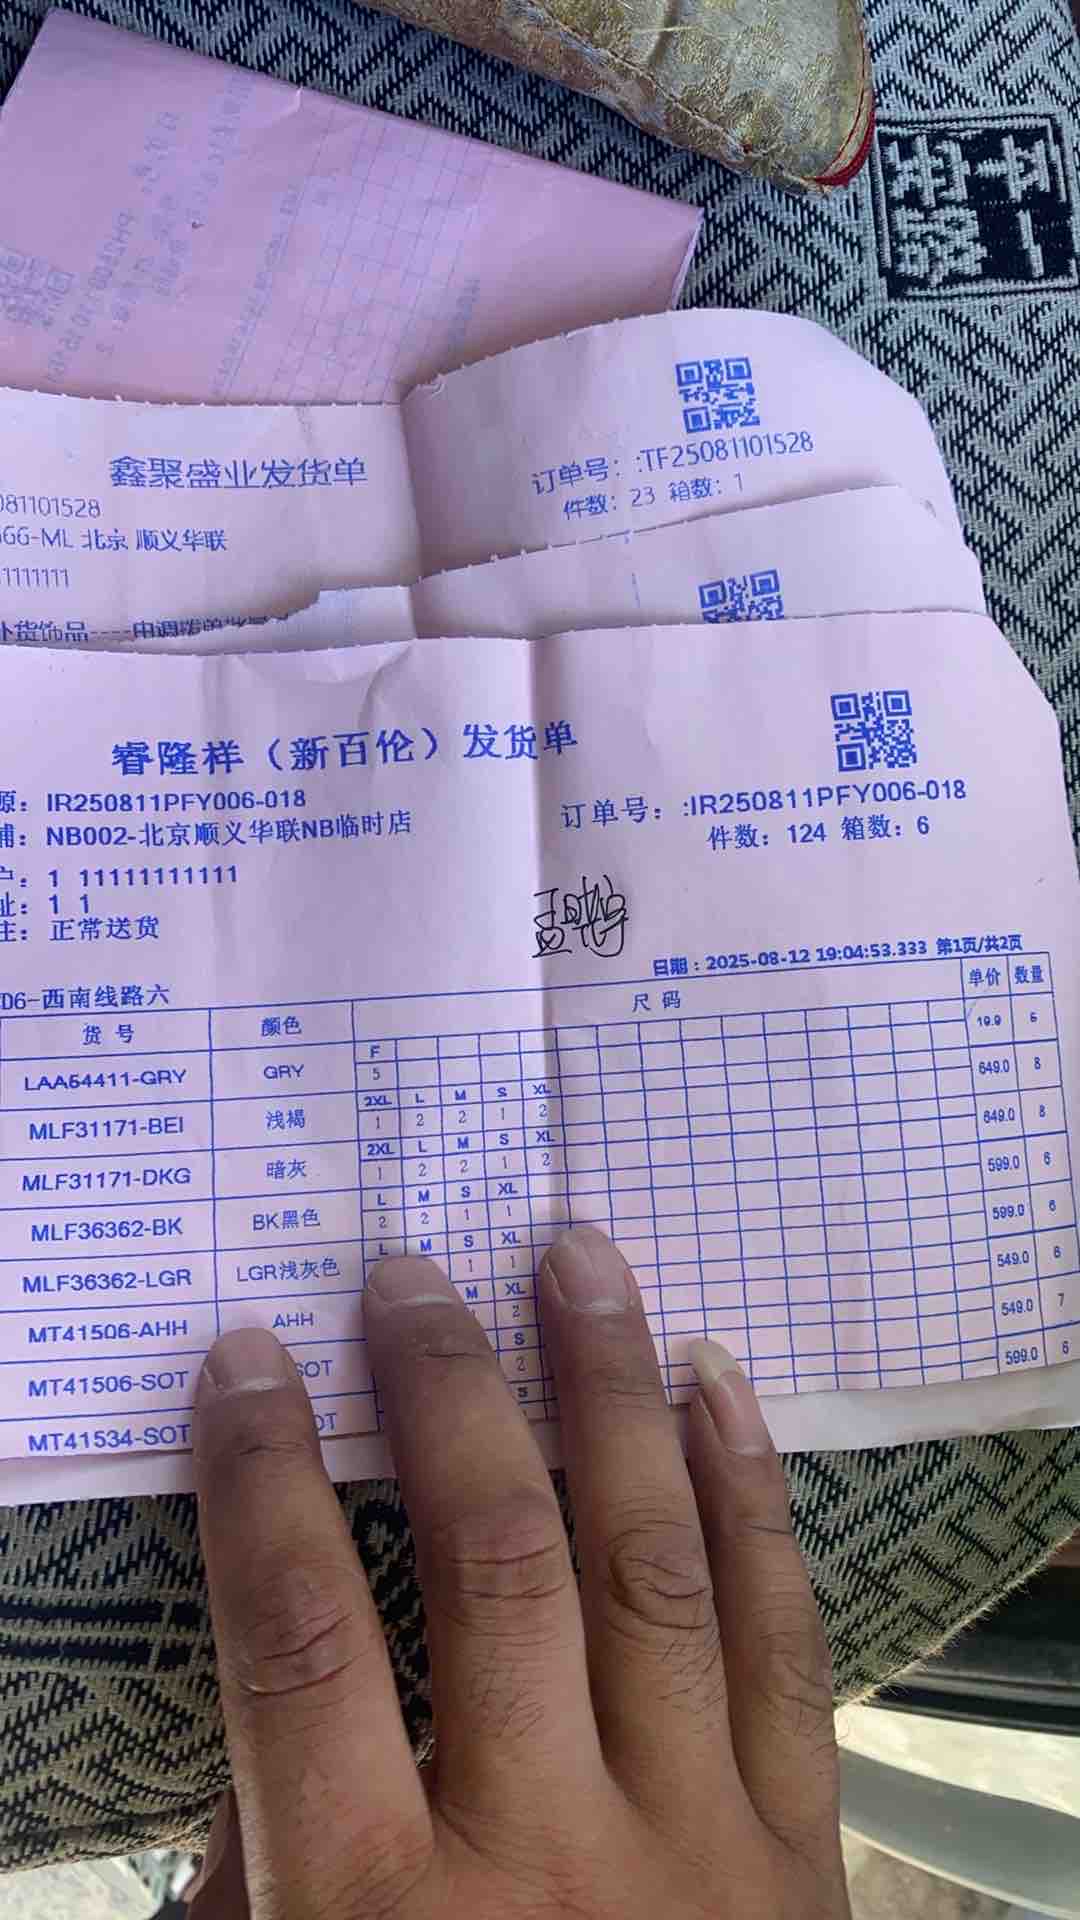 鑫聚盛业发货单
081101528
66-ML 北京 顺义华联
1111111
订单号: :TF25081101528
件数: 23 箱数: 1
补货饰品----电调拨单批量
睿隆祥（新百伦）发货单
源: IR250811PFY006-018
铺: NB002-北京顺义华联NB临时店
户: 1 11111111111
址: 1 1
注: 正常送货
订单号: :IR250811PFY006-018
件数: 124 箱数: 6
日期: 2025-08-12 19:04:53.333 第1页/共2页
D6-西南线路六
货号 颜色 尺码 单价 数量
F
LAA54411-GRY GRY 5 19.9 5
2XL L M S XL
MLF31171-BEI 浅褐 1 2 2 1 2 649.0 8
2XL L M S XL
MLF31171-DKG 暗灰 1 2 2 1 2 649.0 8
L M S XL
MLF36362-BK BK黑色 2 2 1 1 599.0 6
L M S XL
MLF36362-LGR LGR浅灰色 1 1 599.0 6
M XL
MT41506-AHH AHH 2 549.0 6
S
MT41506-SOT SOT 2 549.0 7
S
MT41534-SOT OT 599.0 6